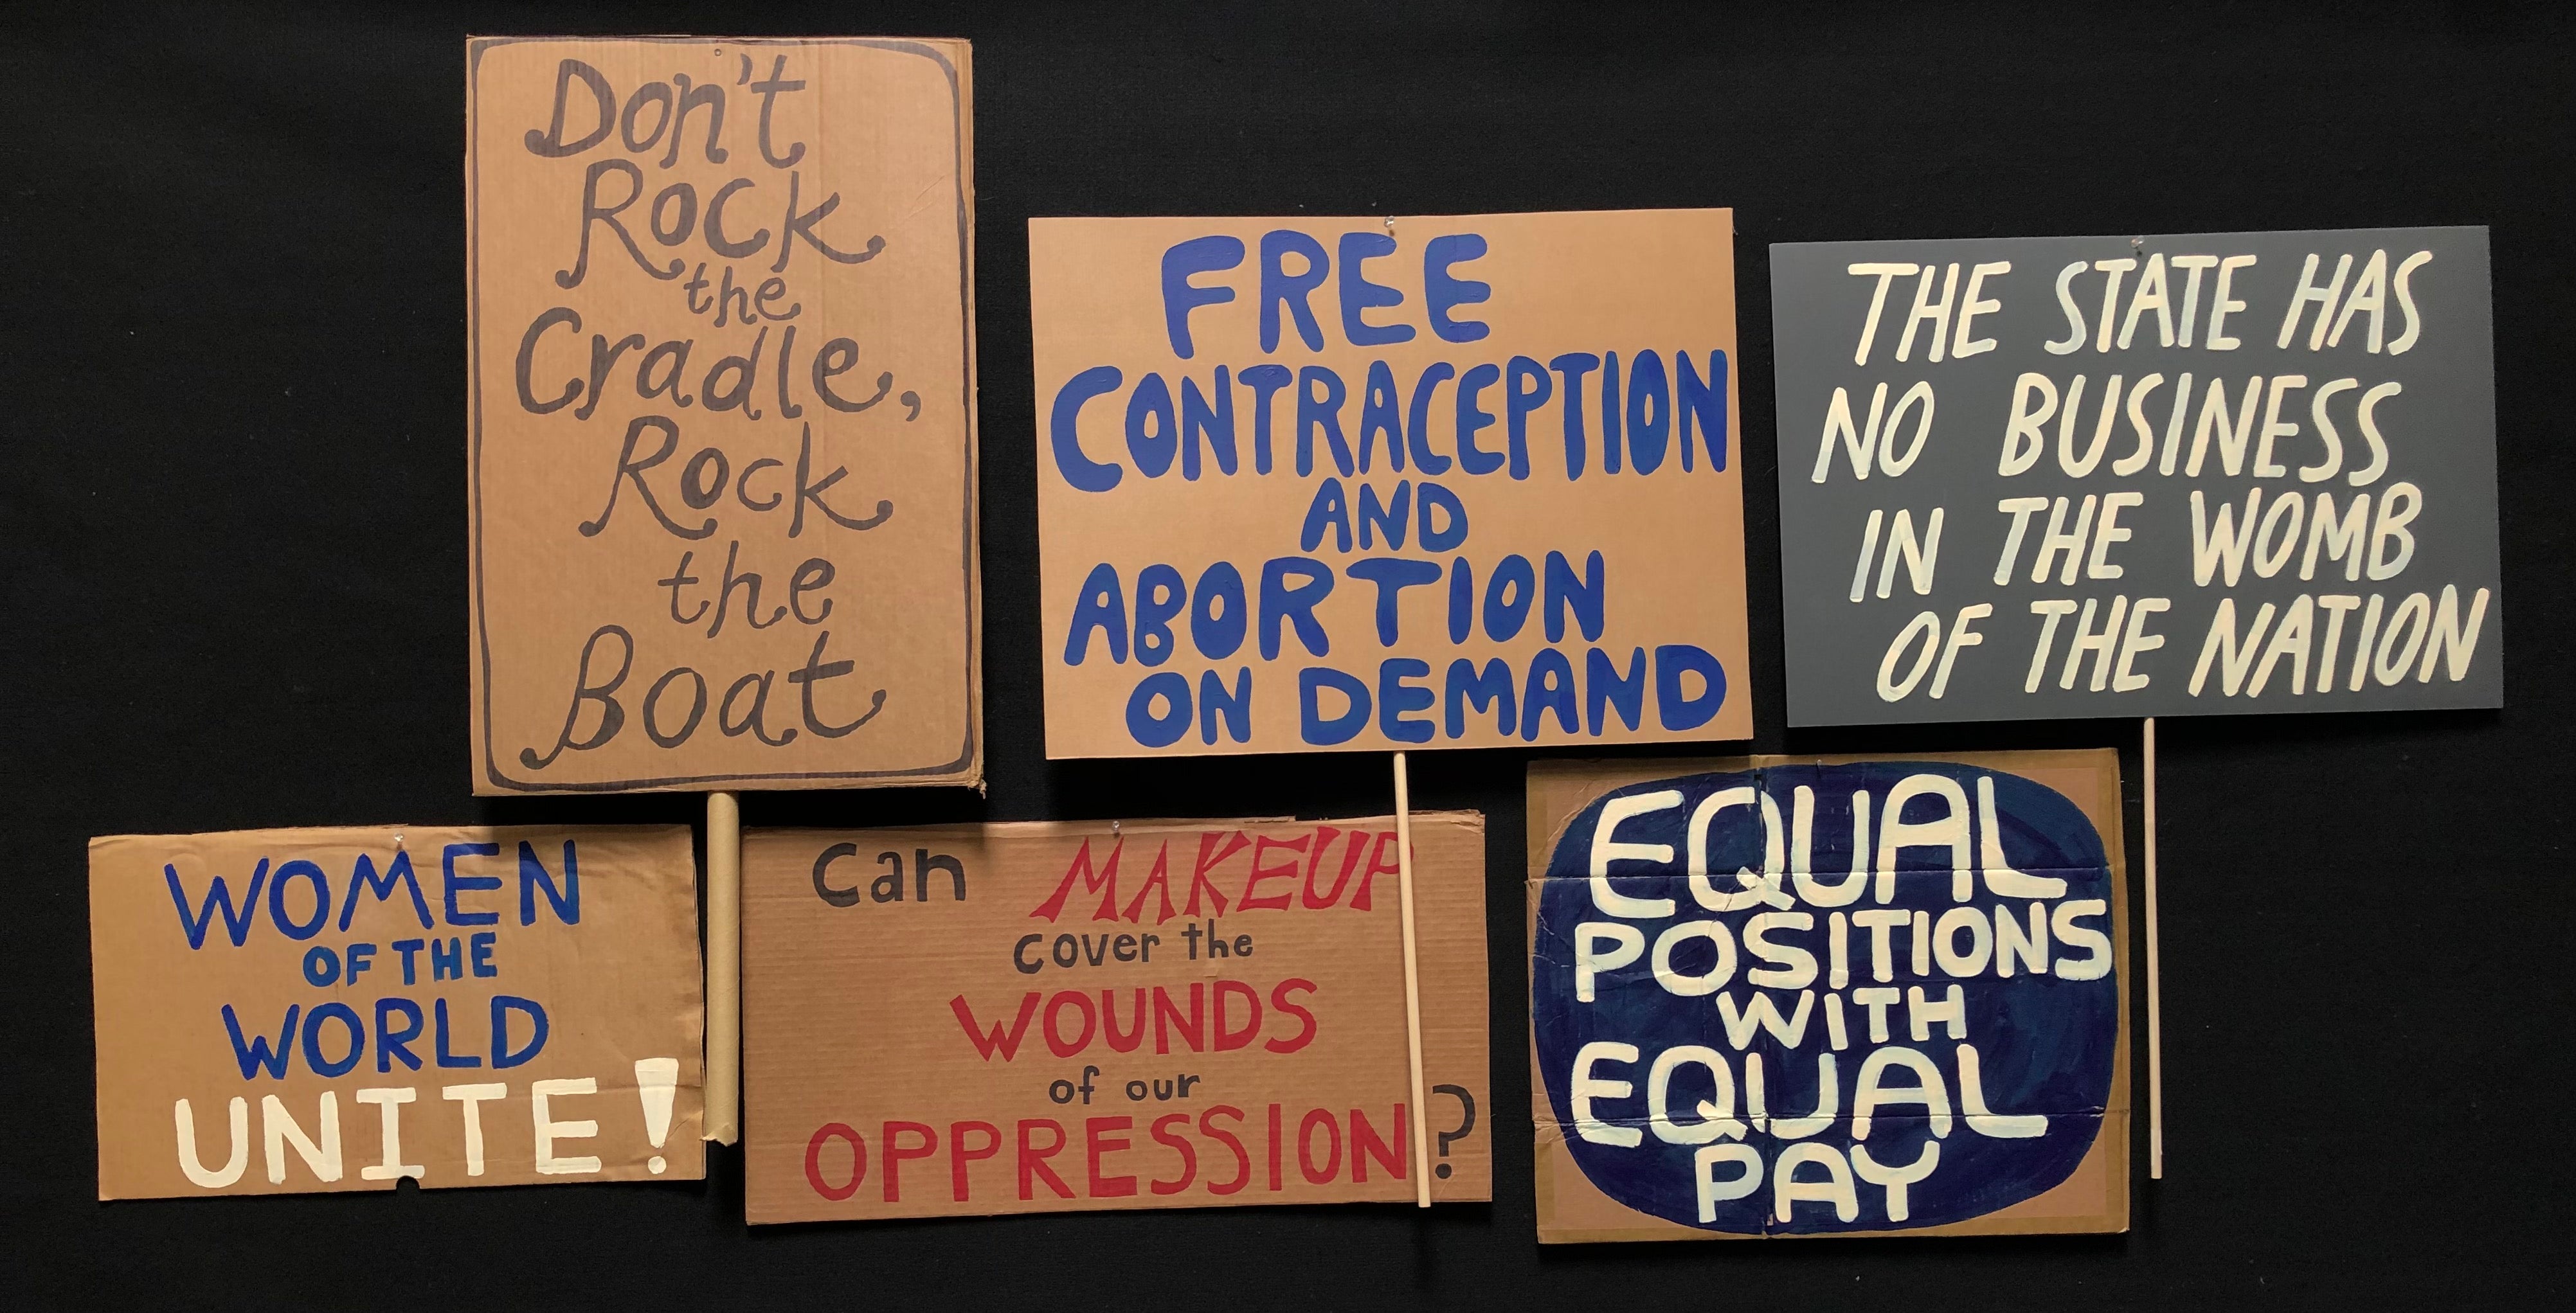 Don't
Rock
the
Cradle,
Rock
the
Boat
FREE
CONTRACEPTION
AND
ABORTION
ON DEMAND
THE STATE HAS
NO BUSINESS
IN THE WOMB
OF THE NATION
WOMEN
OF THE
WORLD
UNITE!
Can MAKEUP
cover the
WOUNDS
of our
OPPRESSION?
EQUAL
POSITIONS
WITH
EQUAL
PAY